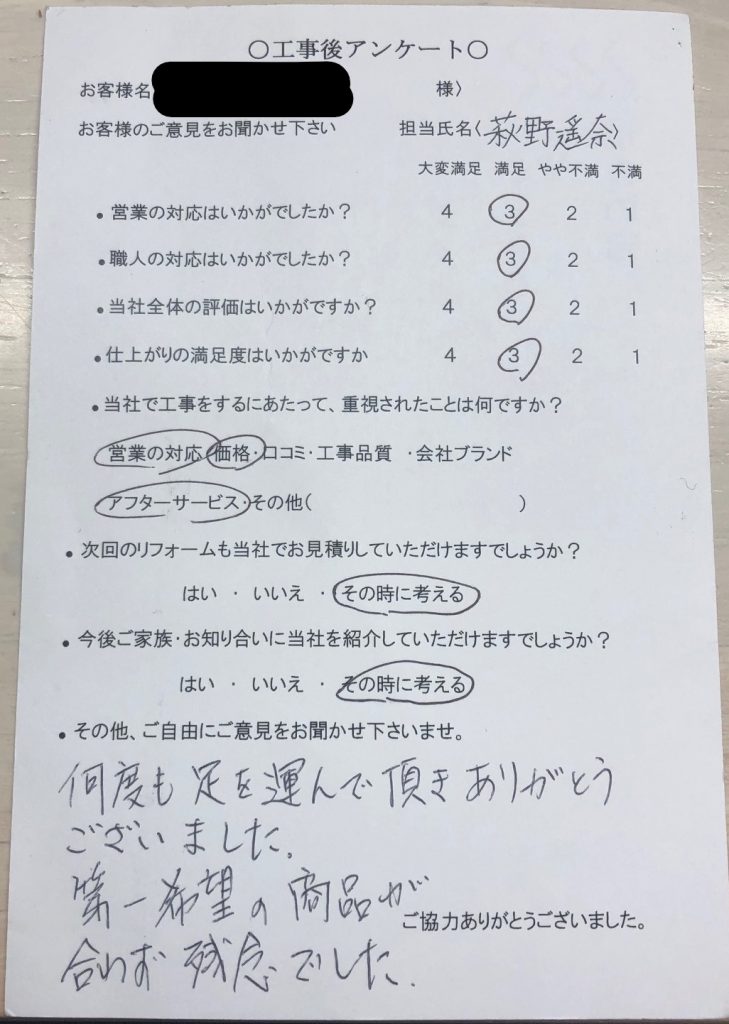 ○工事後アンケート○
お客様名 様)
お客様のご意見をお聞かせ下さい 担当氏名(萩野遥奈)
大変満足 満足 やや不満 不満
・営業の対応はいかがでしたか? 4 3 2 1
・職人の対応はいかがでしたか? 4 3 2 1
・当社全体の評価はいかがですか? 4 3 2 1
・仕上がりの満足度はいかがですか 4 3 2 1
・当社で工事をするにあたって、重視されたことは何ですか?
営業の対応・価格・口コミ・工事品質 ・会社ブランド
アフターサービス・その他( )
・次回のリフォームも当社でお見積りしていただけますでしょうか?
はい ・ いいえ ・ その時に考える
・今後ご家族・お知り合いに当社を紹介していただけますでしょうか?
はい ・ いいえ ・ その時に考える
・その他、ご自由にご意見をお聞かせ下さいませ。
何度も足を運んで頂きありがとう
ございました.
第一希望の商品が
ご協力ありがとうございました。
合わず残念でした.